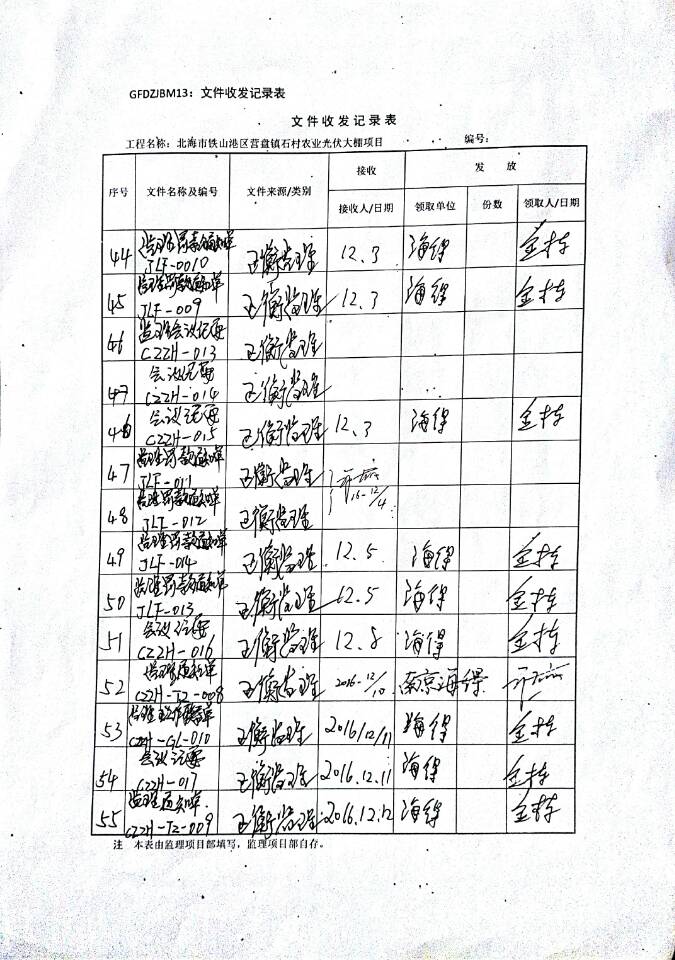 GFDZJBM13：文件收发记录表
文件收发记录表
工程名称：北海市铁山港区营盘镇石村农业光伏大棚项目 编号：
序号 文件名称及编号 文件来源/类别 接收 发放
接收人/日期 领取单位 份数 领取人/日期
44 监理罚款通知单 JLF-0010 正衡监理 12.3 海得 金栋
45 监理罚款通知单 JLF-009 正衡监理 12.3 海得 金栋
46 监理会议纪要 CZZH-013 正衡监理
47 会议纪要 CZZH-014 正衡监理
会议纪要 CZZH-015 正衡监理 12.3 海得 金栋
47 监理罚款通知单 JLF-011 正衡监理 16-12/4
48 监理罚款通知单 JLF-012 正衡监理
49 监理罚款通知单 JLF-014 正衡监理 12.5 海得 金栋
50 监理罚款通知单 JLF-013 正衡监理 12.5 海得 金栋
51 会议纪要 CZZH-016 正衡监理 12.8 海得 金栋
52 监理通知单 CZZH-TZ-008 正衡监理 2016-12/10 南京海得
53 CZZH-GL-010 正衡监理 2016/12/11 海得 金栋
54 会议纪要 CZZH-017 正衡监理 2016.12.11 海得 金栋
55 监理通知单 CZZH-TZ-009 正衡监理 2016.12.12 海得 金栋
注 本表由监理项目部填写，监理项目部自存。